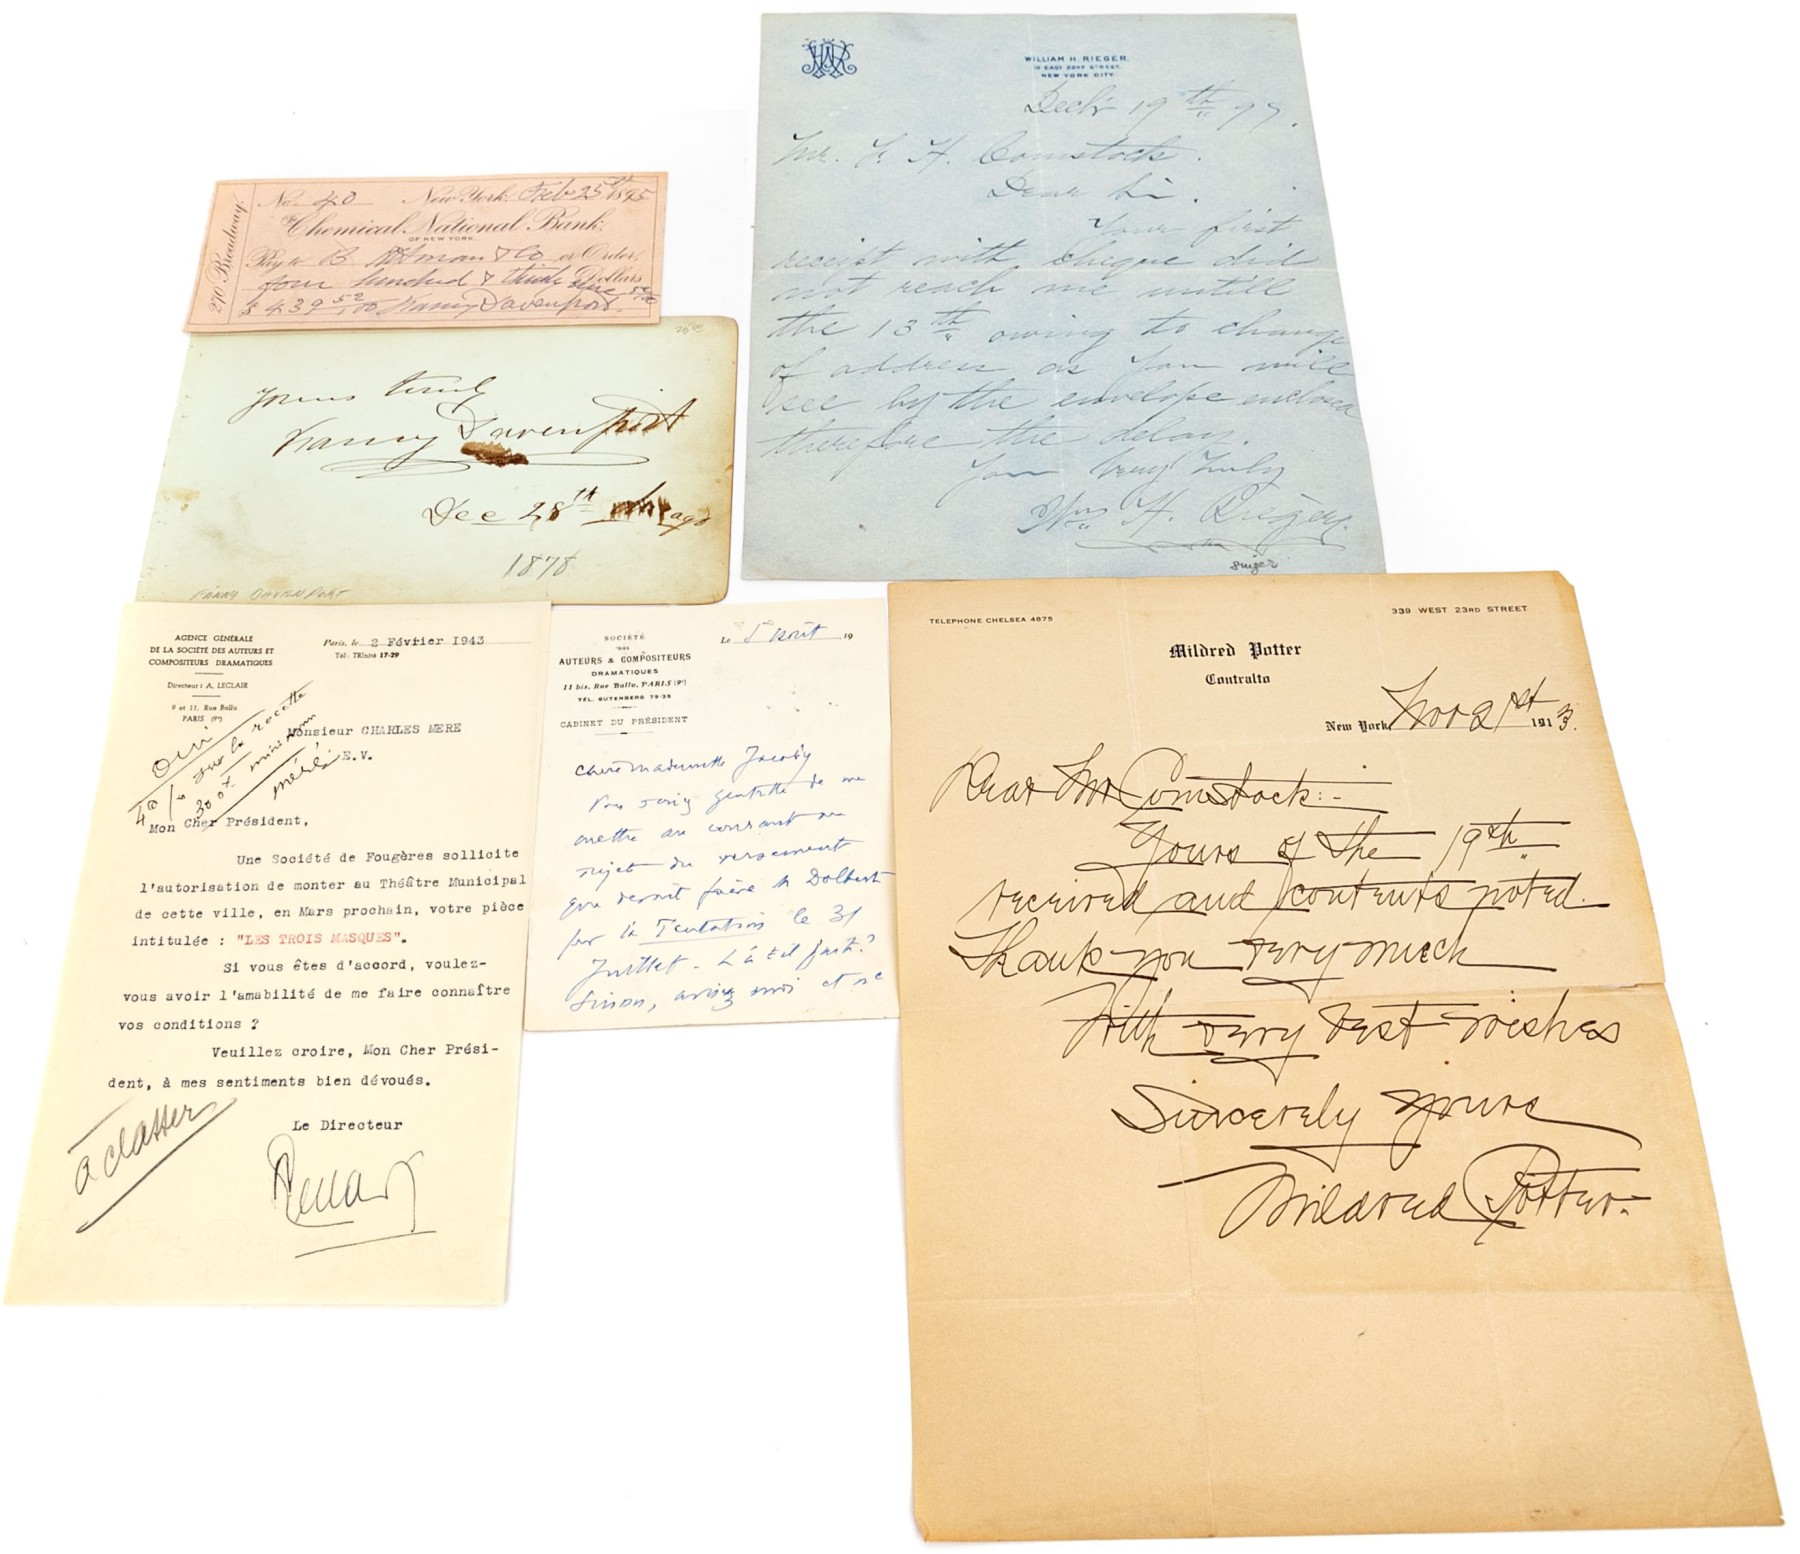 No. 40 New York, Feb 25th 1895
Chemical National Bank.
OF NEW YORK.
Pay to B Altman & Co or Order,
four hundred & thirty nine 52/100 Dollars
$ 439 52/100 Fanny Davenport.
270 Broadway.
Yours truly
Fanny Davenport
Dec 28th Chicago
1878
FANNY DAVENPORT
WILLIAM H. RIEGER.
10 EAST 22ND STREET.
NEW YORK CITY.
Dec'r 19th 97.
Mr. F. H. Comstock.
Dear Sir.
Your first
receipt with cheque did
not reach me untill
the 13th owing to change
of address as you will
see by the envelope enclosed
therefore the delay.
Your Very Truly
Wm H. Rieger.
singer
AGENCE GÉNÉRALE
DE LA SOCIÉTÉ DES AUTEURS ET
COMPOSITEURS DRAMATIQUES
Directeur : A. LECLAIR
9 et 11, Rue Ballu
PARIS (9e)
Paris, le 2 Février 1943
Tél. TRInité 17-29
oui
sur la recette
300 f minimum
méré
Monsieur CHARLES MERE
E.V.
Mon Cher Président,
Une Société de Fougères sollicite
l'autorisation de monter au Théâtre Municipal
de cette ville, en Mars prochain, votre pièce
intitulée : "LES TROIS MASQUES".
Si vous êtes d'accord, voulez-
vous avoir l'amabilité de me faire connaître
vos conditions ?
Veuillez croire, Mon Cher Prési-
dent, à mes sentiments bien dévoués.
Le Directeur
à classer
SOCIÉTÉ
DES
AUTEURS & COMPOSITEURS
DRAMATIQUES
11 bis, Rue Ballu, PARIS (9e)
TÉL. GUTENBERG 79-35
CABINET DU PRÉSIDENT
Le 5 août 19
Chère Mademoiselle Jacoby
Vous seriez gentille de me
mettre au courant au
sujet du versement
que devait faire M Dolbert
pour la Tentation le 31
Juillet - L'a t il fait ?
Sinon, avisez moi et ne
TELEPHONE CHELSEA 4875
339 WEST 23RD STREET
Mildred Potter
Contralto
New York Nov 21st 1913.
Dear Mr Comstock:-
Yours of the 19th
received and contents noted.
Thank you very much
With very best wishes
Sincerely yours
Mildred Potter.